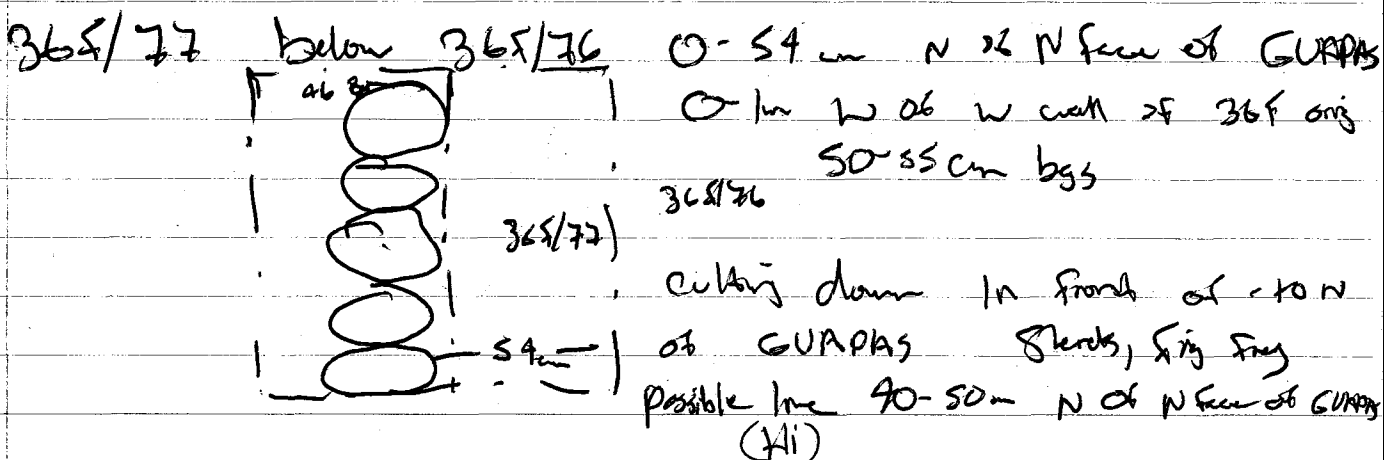 365/77 below 365/76 0-54 cm N of N face of GUAPAS
46
0-1m W of W wall of 36F orig
50-55 cm bgs
365/76
365/77
cutting down in front of - to N
54cm
of GUAPAS sherds, fig frag
possible line 40-50m N of N face of GUAPAS